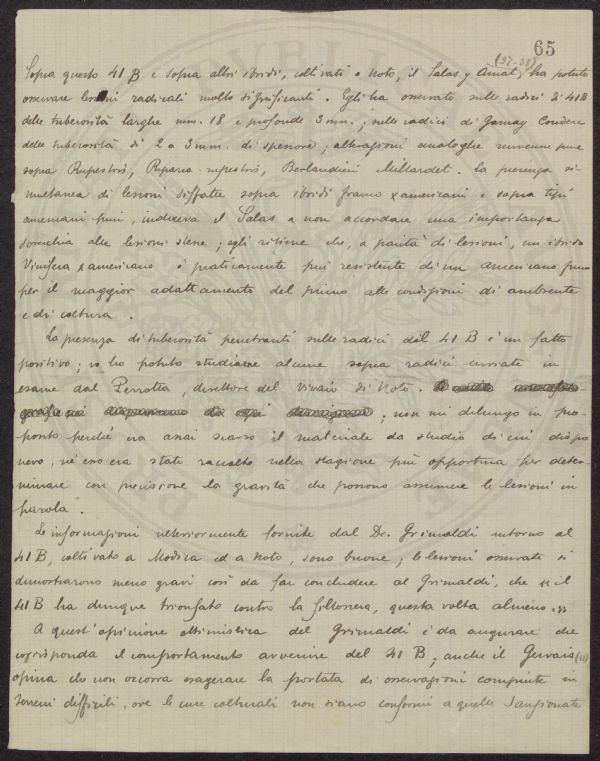 65
(37-38)
Sopra questo 41 B e sopra altri ibridi, coltivati a Noto, il Salas y Amat, ha potuto
osservare lesioni radicali molto significanti. Egli ha osservato sulle radici di 41B
delle tuberosità larghe mm. 18 e profonde 3 mm.; sulle radici di Gamay Couderc
delle tuberosità di 2 a 3 mm. di spessore; alterazioni analoghe rinvenne pure
sopra Rupestris, Riparia-rupestris, Berlandieri Millardet. La presenza si-
multanea di lesioni siffatte sopra ibridi franco x americani e sopra tipi
americani puri, induceva il Salas a non accordare una importanza
soverchia alle lesioni stesse; egli ritiene che, a parità di lesioni, un ibrido
Vinifera x americano è praticamente più resistente di un americano puro
per il maggior adattamento del primo alle condizioni di ambiente
e di coltura.
La presenza di tuberosità penetranti sulle radici del 41 B è un fatto
positivo; io ho potuto studiarne alcune sopra radici inviate in
esame dal Perrotta, direttore del Vivaio di Noto.
; non mi dilungo in pro-
posito perchè era assai scarso il materiale da studio di cui dispo
nevo, nè esso era stato raccolto nella stagione più opportuna per deter-
minare con precisione la gravità che possono assumere le lesioni in
parola.
Le informazioni ulteriormente fornite dal Dr. Grimaldi intorno al
41 B, coltivato a Modica ed a Noto, sono buone; le lesioni osservate si
dimostrarono meno gravi così da far concludere al Grimaldi, che « il
41 B ha dunque trionfato contro la fillossera, questa volta almeno. »
A quest'opinione ottimistica del Grimaldi è da augurare che
corrisponda il comportamento avvenire del 41 B; anche il Gervais
opina che non occorra esagerare la portata di osservazioni compiute in
terreni difficili, ove le cure colturali non siano conformi a quelle sanzionate